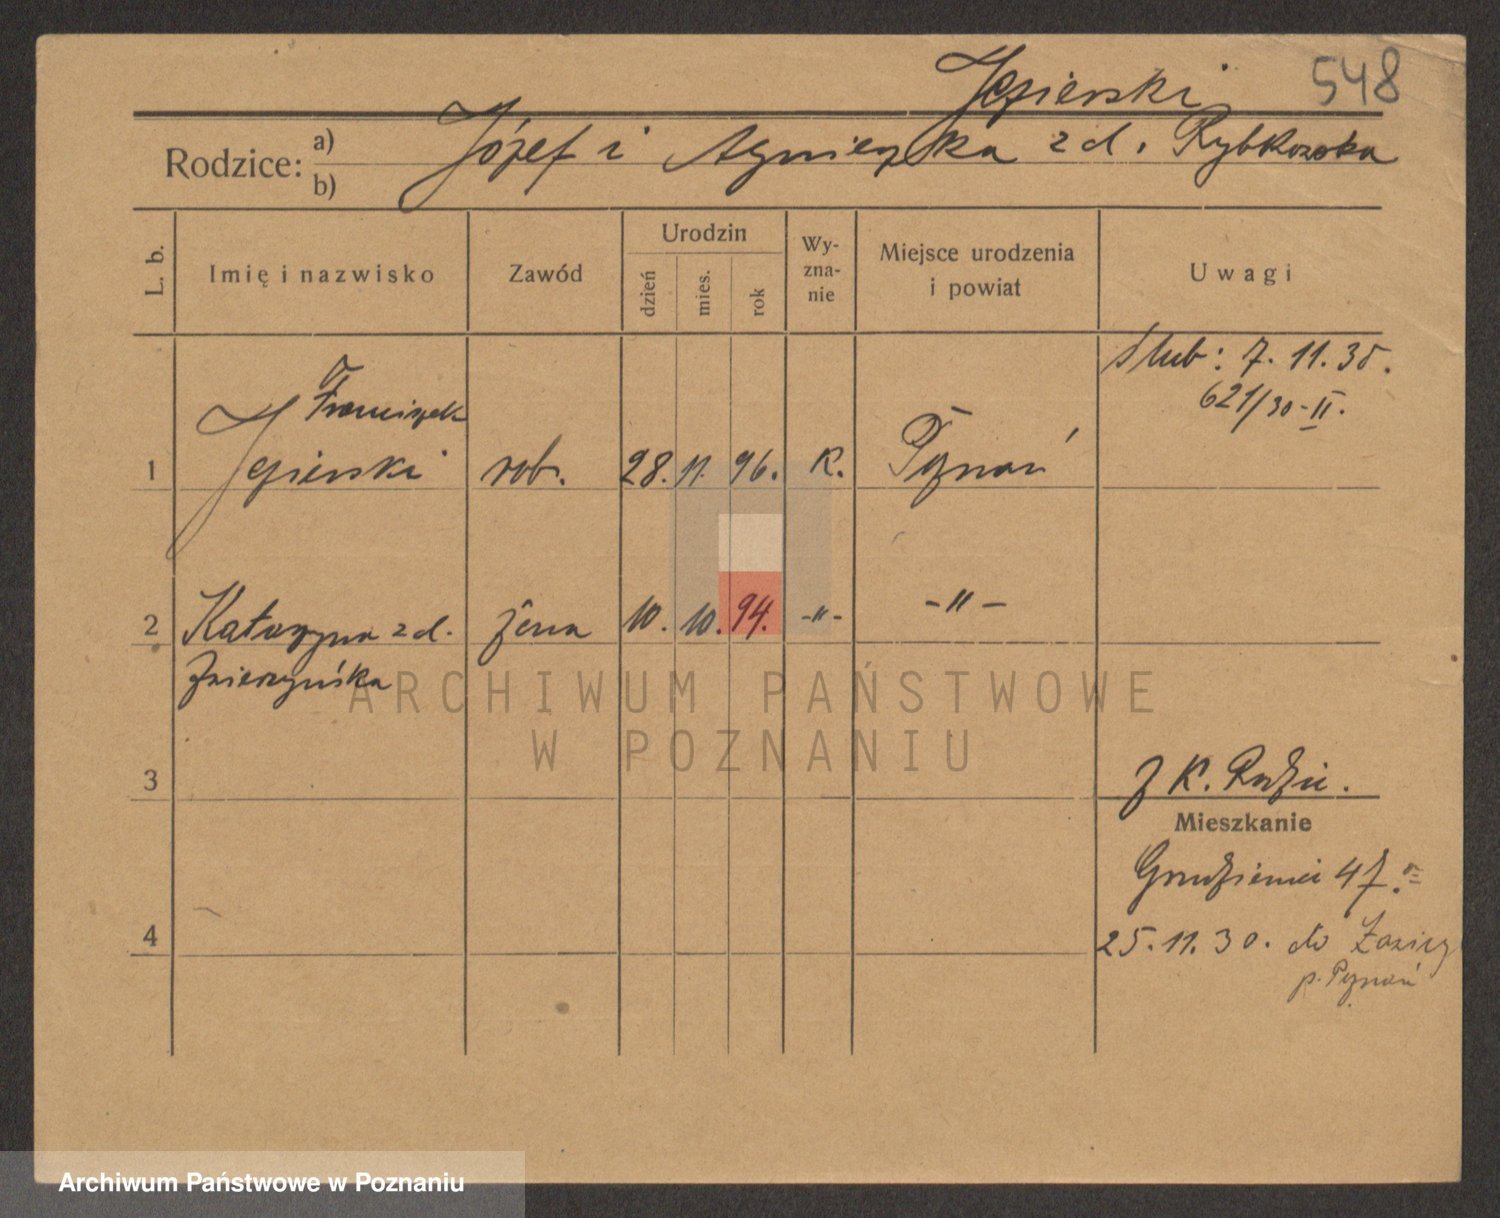 Jezierski 548
Rodzice: a) b) Józef i Agnieszka z d. Rybkowska
L. b.
Imię i nazwisko
Zawód
Urodzin
dzień
mies.
rok
Wy-
zna-
nie
Miejsce urodzenia
i powiat
Uwagi
ślub: 7. 11. 30.
621/30-II.
Franciszek
1 Jezierski rob. 28. 11. 96. K. Poznań
2 Katarzyna z d. żona 10. 10. 94. -"- -"-
Zwierzyńska
3
z K.
Mieszkanie
Grudzieniec 47.
4
25. 11. 30. do
p. Poznań
ARCHIWUM PAŃSTWOWE
W POZNANIU
Archiwum Państwowe w Poznaniu